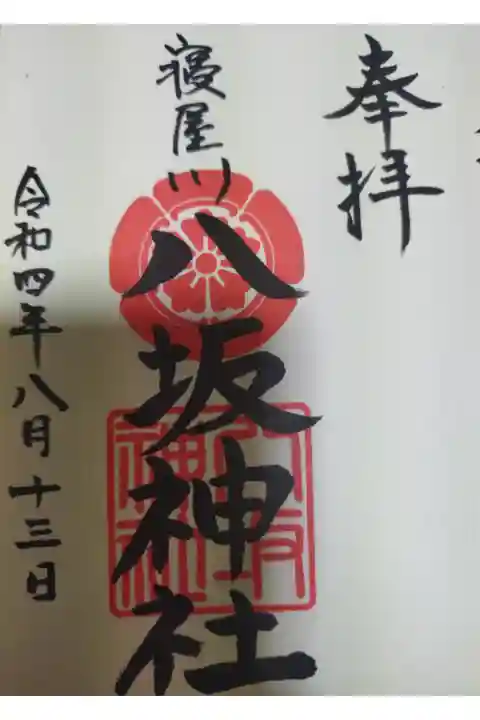 奉拝
寝屋川
八坂神社
八坂
神社
令和四年八月十三日